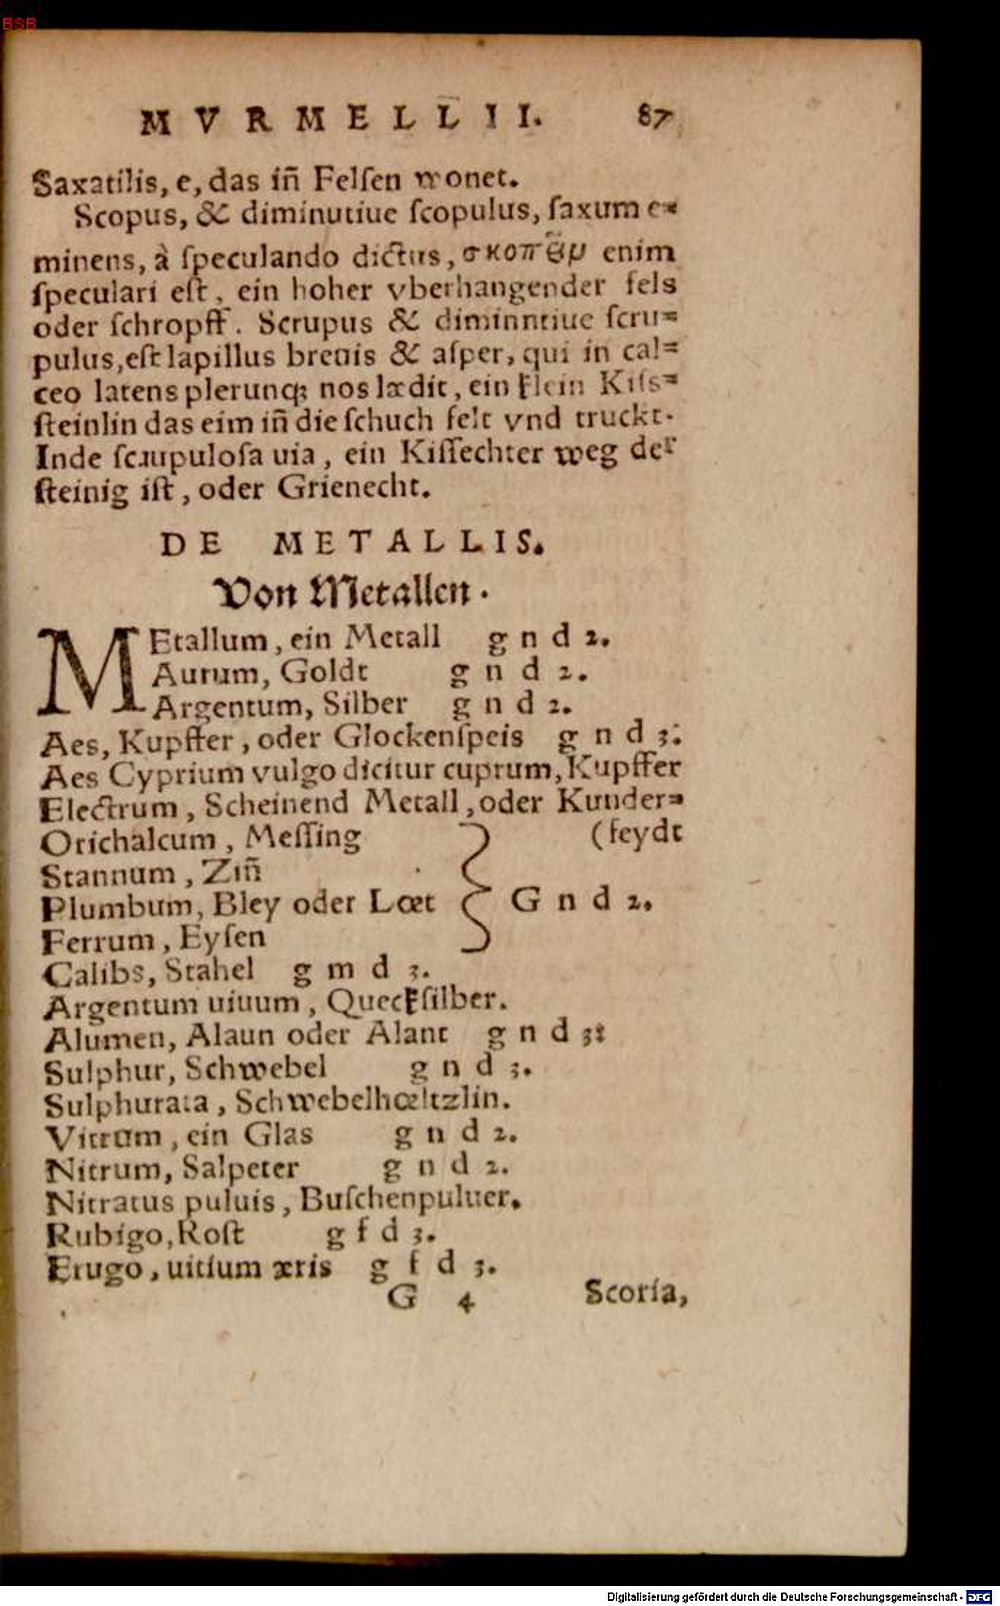 BSB
MVRMELLII. 87
Saxatilis, e, das iñ Felſen wonet.
Scopus, & diminutiue ſcopulus, ſaxum e=
minens, à ſpeculando dictus, enim
ſpeculari eſt, ein hoher vberhangender fels
oder ſchropff. Scrupus & diminntiue ſcru=
pulus, eſt lapillus breuis & aſper, qui in cal=
ceo latens plerunq; nos lædit, ein klein Kiſs=
ſteinlin das eim iñ die ſchuch felt vnd truckt.
Inde ſcrupuloſa uia, ein Kiſſechter weg der
ſteinig iſt, oder Grienecht.
DE METALLIS.
Von Metallen.
MEtallum, ein Metall g n d 2.
Aurum, Goldt g n d 2.
Argentum, Silber g n d 2.
Aes, Kupffer, oder Glockenſpeis g n d 3:
Aes Cyprium vulgo dicitur cuprum, Kupffer
Electrum, Scheinend Metall, oder Kunder=
Orichalcum, Meſſing (feydt
Stannum, Ziñ
Plumbum, Bley oder Lœt } G n d 2.
Ferrum, Eyſen
Calibs, Stahel g m d 3.
Argentum uiuum, Queckſilber.
Alumen, Alaun oder Alant g n d 3:
Sulphur, Schwebel g n d 3.
Sulphurata, Schwebelhœltzlin.
Vitrum, ein Glas g n d 2.
Nitrum, Salpeter g n d 2.
Nitratus puluis, Buſchenpuluer.
Rubigo, Roſt g f d 3.
Erugo, uitium æris g f d 3.
G 4 Scoria,
Digitalisierung gefördert durch die Deutsche Forschungsgemeinschaft - DFG